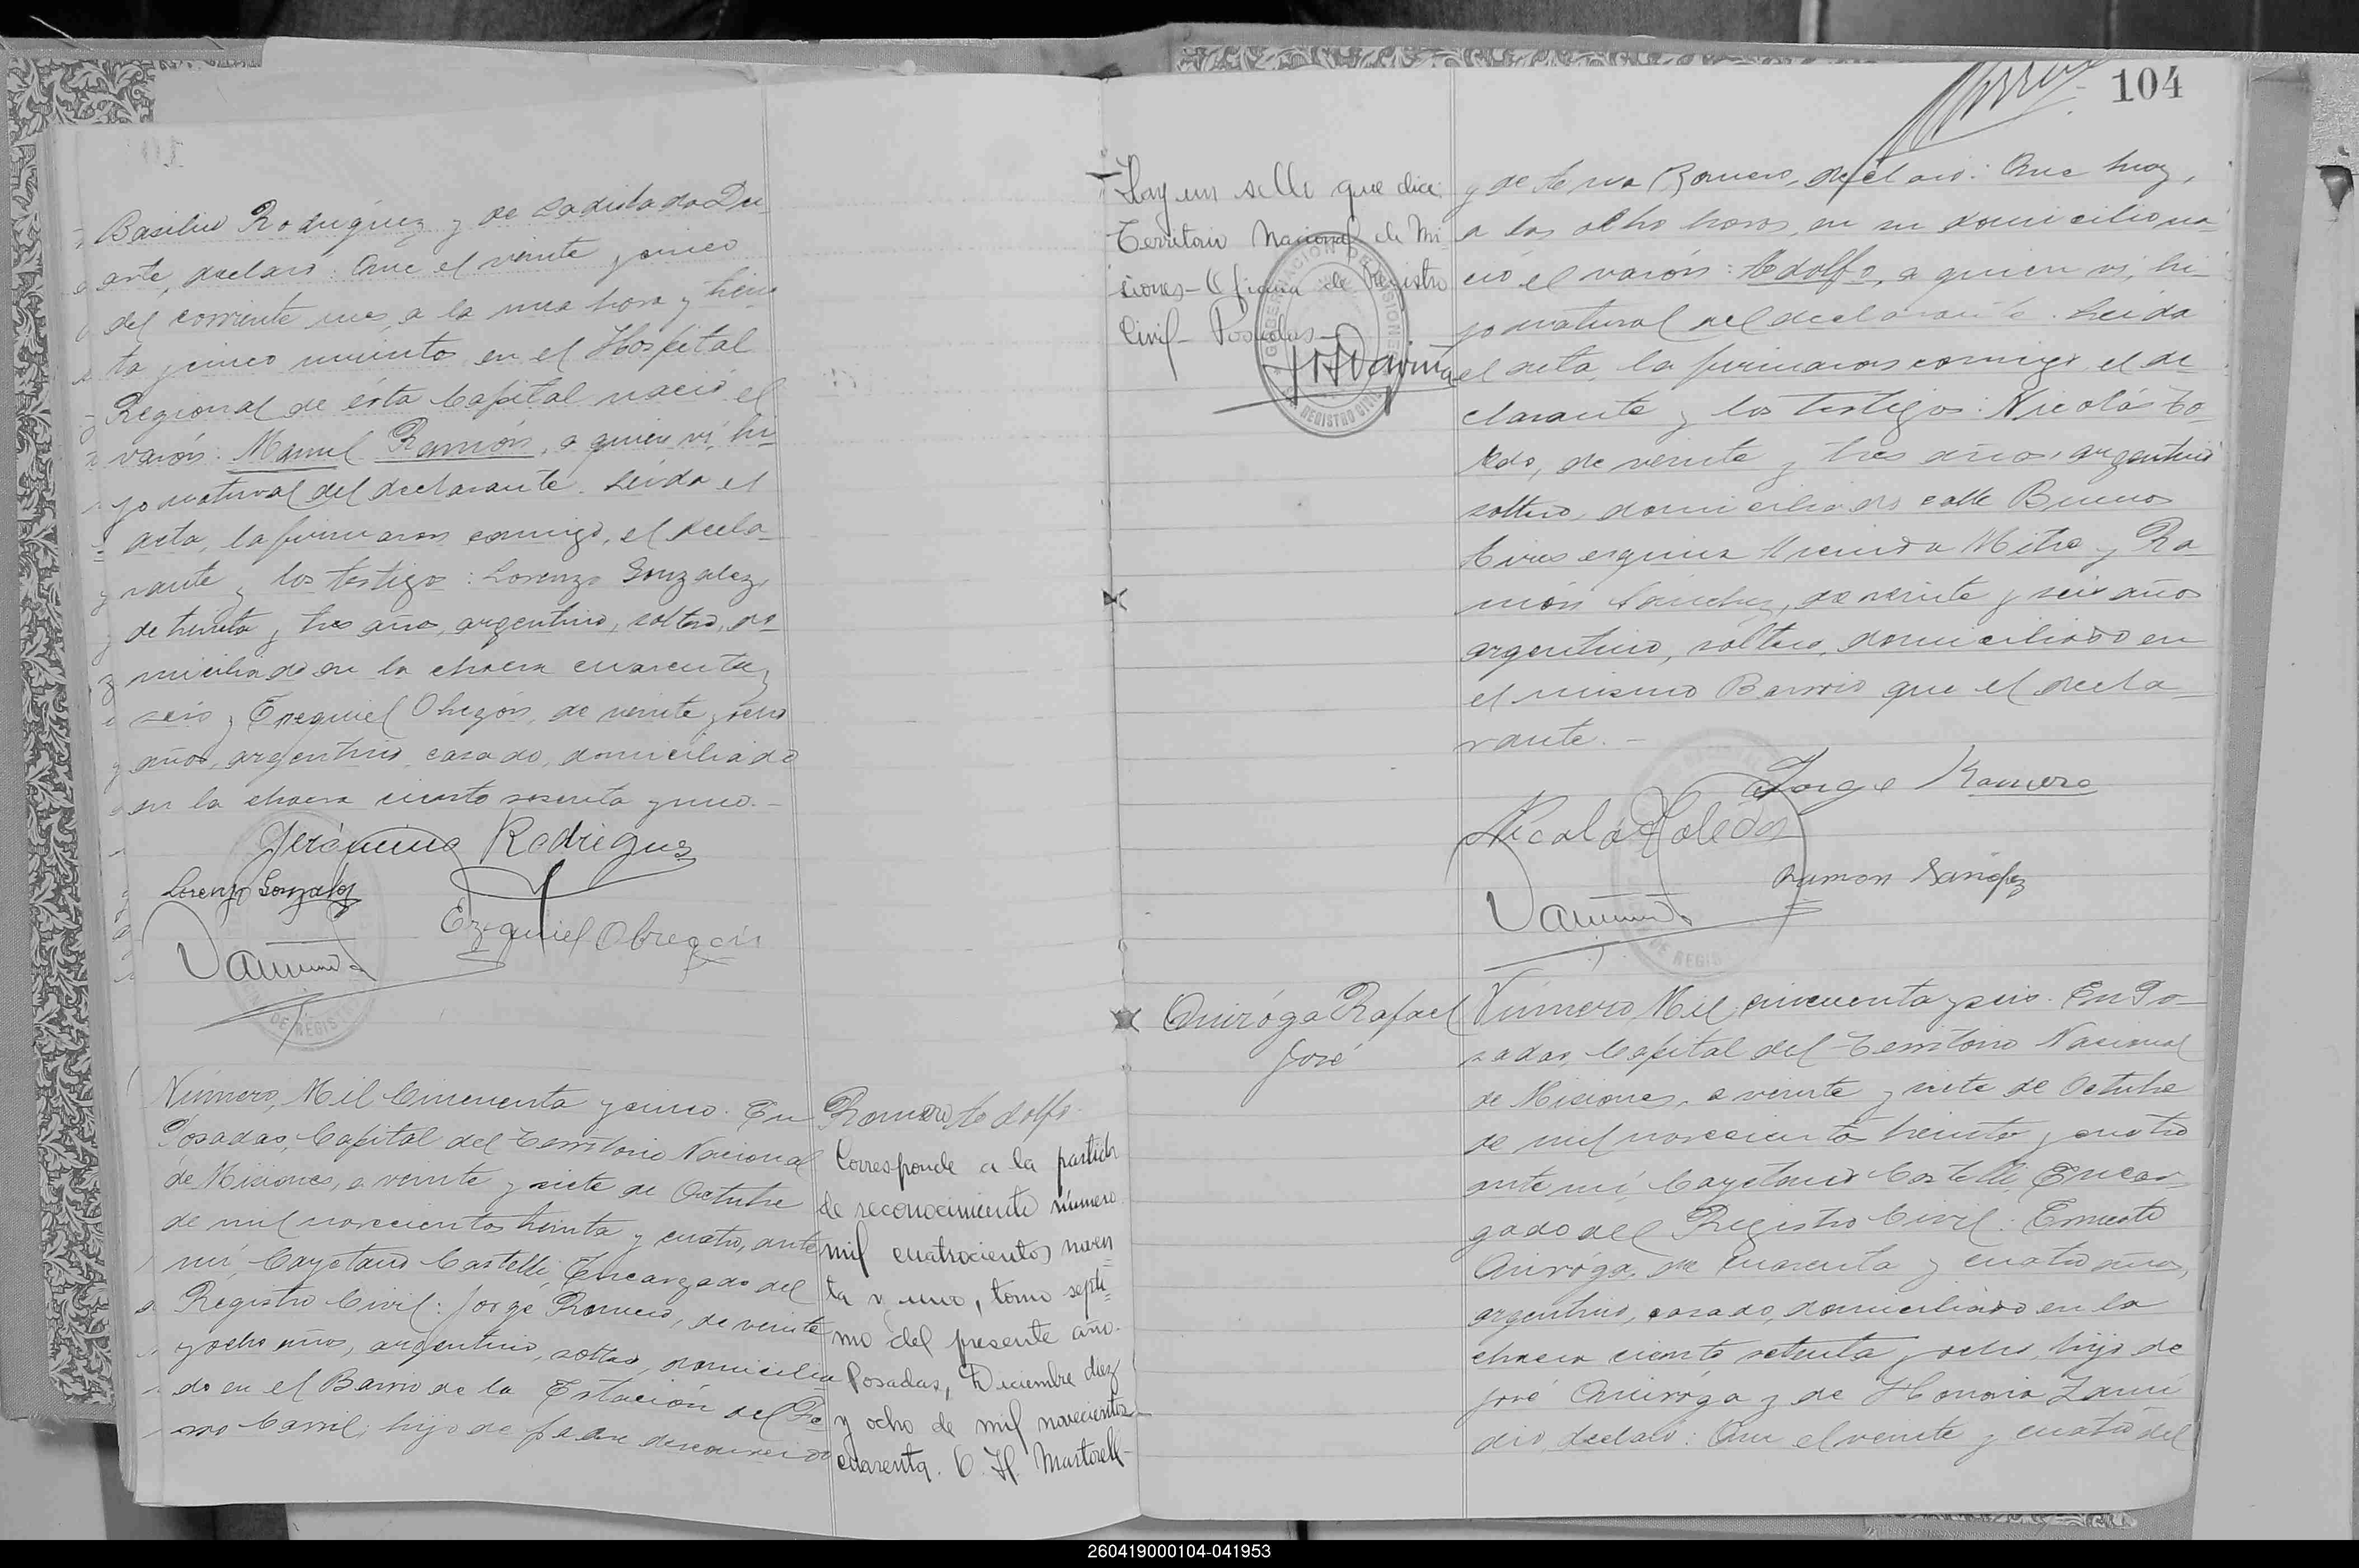 Basilio Rodríguez y de Ladislada Du-
arte, declaró: Que el veinte y cinco
del corriente mes, a la una hora y trein
ta y cinco minutos en el Hospital
Regional de ésta Capital nació el
varón: Manuel Ramón, a quien vi, hi-
jo natural del declarante. Leída el
acta, la firmaron conmigo, el decla-
rante y los testigo: Lorenzo Gonzalez,
de treinta y tres años, argentino, soltero, do-
miciliado en la chacra cuarenta y
seis y Ezequiel Obregón, de veinte y ocho
años, argentino, casado, domiciliado
en la chacra ciento sesenta y uno.-
Jerónimo Rodriguez
Lorenzo Gonzalez
Ezequiel Obregón
DE REGISTRO
Número, Mil Cincuenta y cinco. En
Posadas, Capital del Territorio Nacional
de Misiones, a veinte y siete de Octubre
de mil novecientos treinta y cuatro, ante
mí, Cayetano Castelli, Encargado del
Registro Civil: Jorge Romero, de veinte
y ocho años, argentino, soltero, domicilia
do en el Barrio de la Estación del Fe-
rro Carril; hijo de padre desconocido
Romero Adolfo-
Corresponde a la partida
de reconocimiento número
mil cuatrocientos noven
ta y uno, tomo septi-
mo del presente año.
Posadas, Diciembre diez
y ocho de mil novecientos
cuarenta. C. H. Martorell-
104
Hay un sello que dice:
Territorio Nacional de Mi
siones- Oficina de Registro
Civil- Posadas-
GOBERNACION DE MISIONES
REGISTRO CIVIL
y de Romero, declaró: Que hoy,
a las ocho horas, en su domicilio na-
ció el varón: Adolfo, a quien vi, hi-
jo natural del declarante. Leída
el acta, la firmaron conmigo, el de
clarante y los testigos: Nicolás To-
ledo, de veinte y tres años, argentino
soltero, domiciliado calle Buenos
Aires esquina Avenida Mitre y Ra
món Sánchez, de veinte y seis años
argentino, soltero, domiciliado en
el mismo Barrio que el decla-
rante.-
Jorge Romero
Nicolás Toledo
Ramon Sanchez
DE REGIS
Quiróga Rafael
José
Número Mil cincuenta y seis. En Po-
sadas, Capital del Territorio Nacional
de Misiones, a veinte y siete de Octubre
de mil novecientos treinta y cuatro
ante mí, Cayetano Castelli, Encar-
gado del Registro Civil: Ernesto
Quiróga, de cuarenta y cuatro años,
argentino, casado, domiciliado en la
chacra ciento setenta y ocho, hijo de
José Quiróga y de Honoria Zamu
dio, declaró: Que el veinte y cuatro del
260419000104-041953